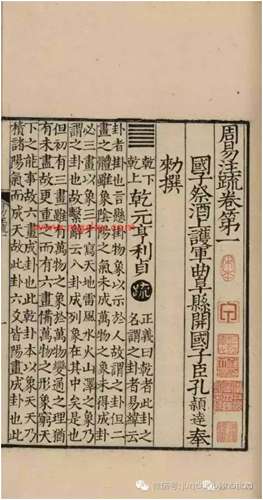 周易注疏卷第一
國子祭酒上護軍曲阜縣開國子臣孔穎達奉
勑撰
乾下
乾上
乾元亨利貞
疏
正義曰乾者此卦之
名謂之卦者易緯云
卦者掛也言懸掛物象以示於人故謂之卦但二
畫之體雖象陰陽之氣未成萬物之象未得成卦
必三畫以象三才寫天地雷風水火山澤之象乃
謂之卦也故繫辭云八卦成列象在其中矣是也
但初有三畫雖有萬物之象於萬物變通之理猶
有未盡故更重之而有六畫備萬物之形象窮天
下之能事故六畫成卦也此乾卦本以象天天乃
積諸陽氣而成天故此卦六爻皆陽畫成卦也此
微信号: